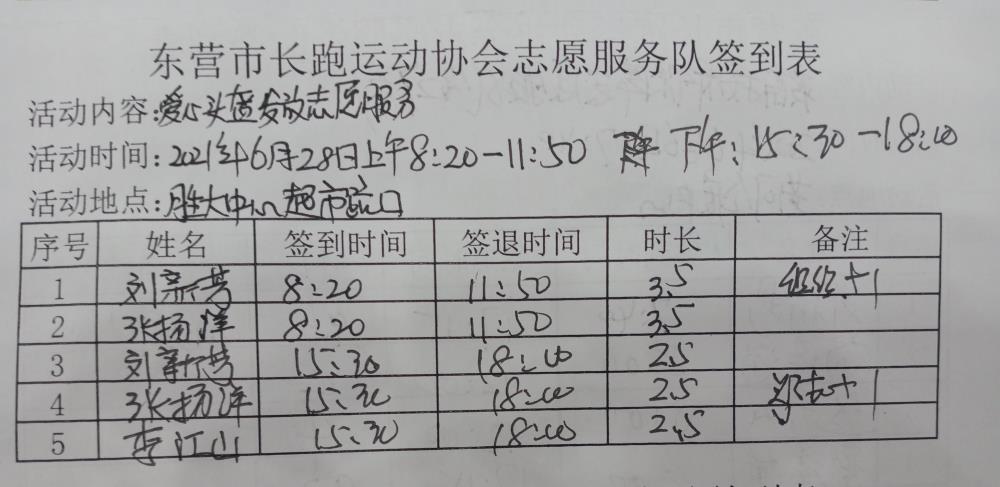 东营市长跑运动协会志愿服务队签到表
活动内容:爱心头盔发放志愿服务
活动时间:2021年6月28日上午8:20-11:50 下午:15:30-18:00
活动地点:胜大中心超市路口
序号 姓名 签到时间 签退时间 时长 备注
1 刘新芳 8:20 11:50 3.5 组织+1
2 张扬洋 8:20 11:50 3.5
3 刘新芳 15:30 18:00 2.5
4 张扬洋 15:30 18:00 2.5 +1
5 李江山 15:30 18:00 2.5